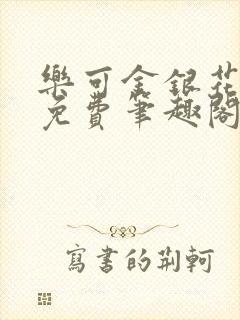 樂可金銀花
免費筆趣閣
寫書的荊軻